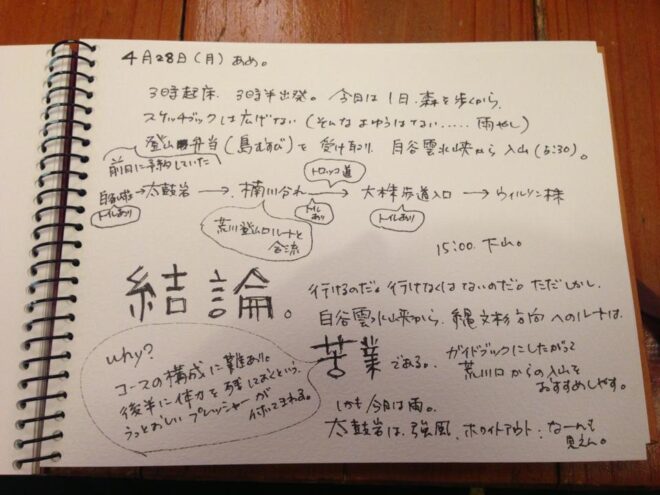 4月28日(月) あめ。
3時起床、3時半出発。今日は1日、森を歩くから、
スケッチブックは広げない(そんなよゆうはてない……雨やし)
登山弁当(島むすび)を受け取り、白谷雲水峡から入山(5:30)。
前日に予約していた
トロッコ道
白谷雲水峡→太鼓岩→楠川分れ→大株歩道入口→ウィルソン株
トイレあり
トイレあり
トイレあり
荒川登山口ルートと
合流
15:00 下山。
結論。
行けるのだ。行けなくはないのだ。ただしかし、
白谷雲水峡から、縄文杉方向へのルートは、
苦業である。ガイドブックにしたがって
荒川口からの入山を
おすすめしやす。
why?
コースの構成に難あり。
後半に体力を残しておくという、
うっとおしいプレッシャーが
付いてまわる。
しかも今日は雨。
太鼓岩は、強風、ホワイトアウト:なーんも
見えん。